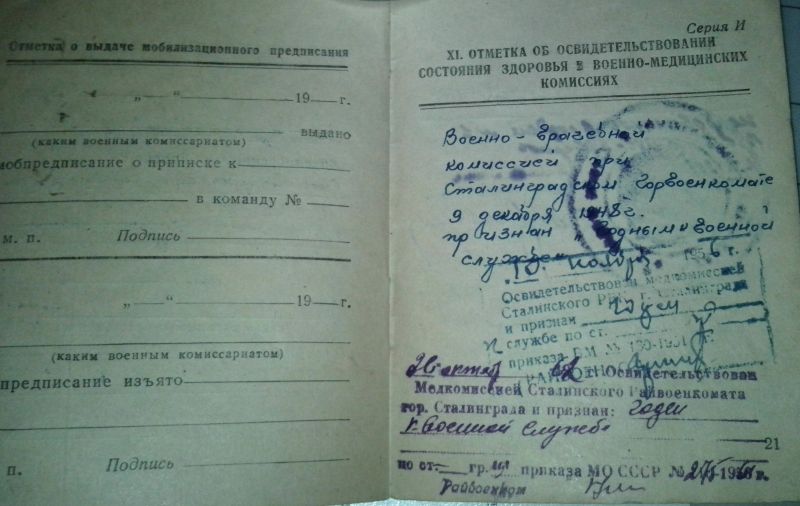 Отметка о выдаче мобилизационного предписания
„ — “ 19 — г.
выдано
(каким военным комиссариатом)
мобпредписание о приписке к
в команду № —
м. п. Подпись
„ — “ 19 — г.
(каким военным комиссариатом)
предписание изъято
п. Подпись
Серия И
XI. ОТМЕТКА ОБ ОСВИДЕТЕЛЬСТВОВАНИИ
СОСТОЯНИЯ ЗДОРОВЬЯ В ВОЕННО-МЕДИЦИНСКИХ
КОМИССИЯХ
Военно-врачебной
комиссией при
Сталинградском горвоенкомате
9 декабря 1948г.
признан годным к военной
службе
ноября 1956 г.
Освидетельствован медкомиссией
Сталинского РВК г. Сталинграда
и признан годен
к службе по ст.
приказа
26 октября г. Освидетельствован
Медкомиссией Сталинского Райвоенкомата
гор. Сталинграда и признан: годен
к военной службе
21
по ст. — гр. приказа МО СССР №
Райвоенком